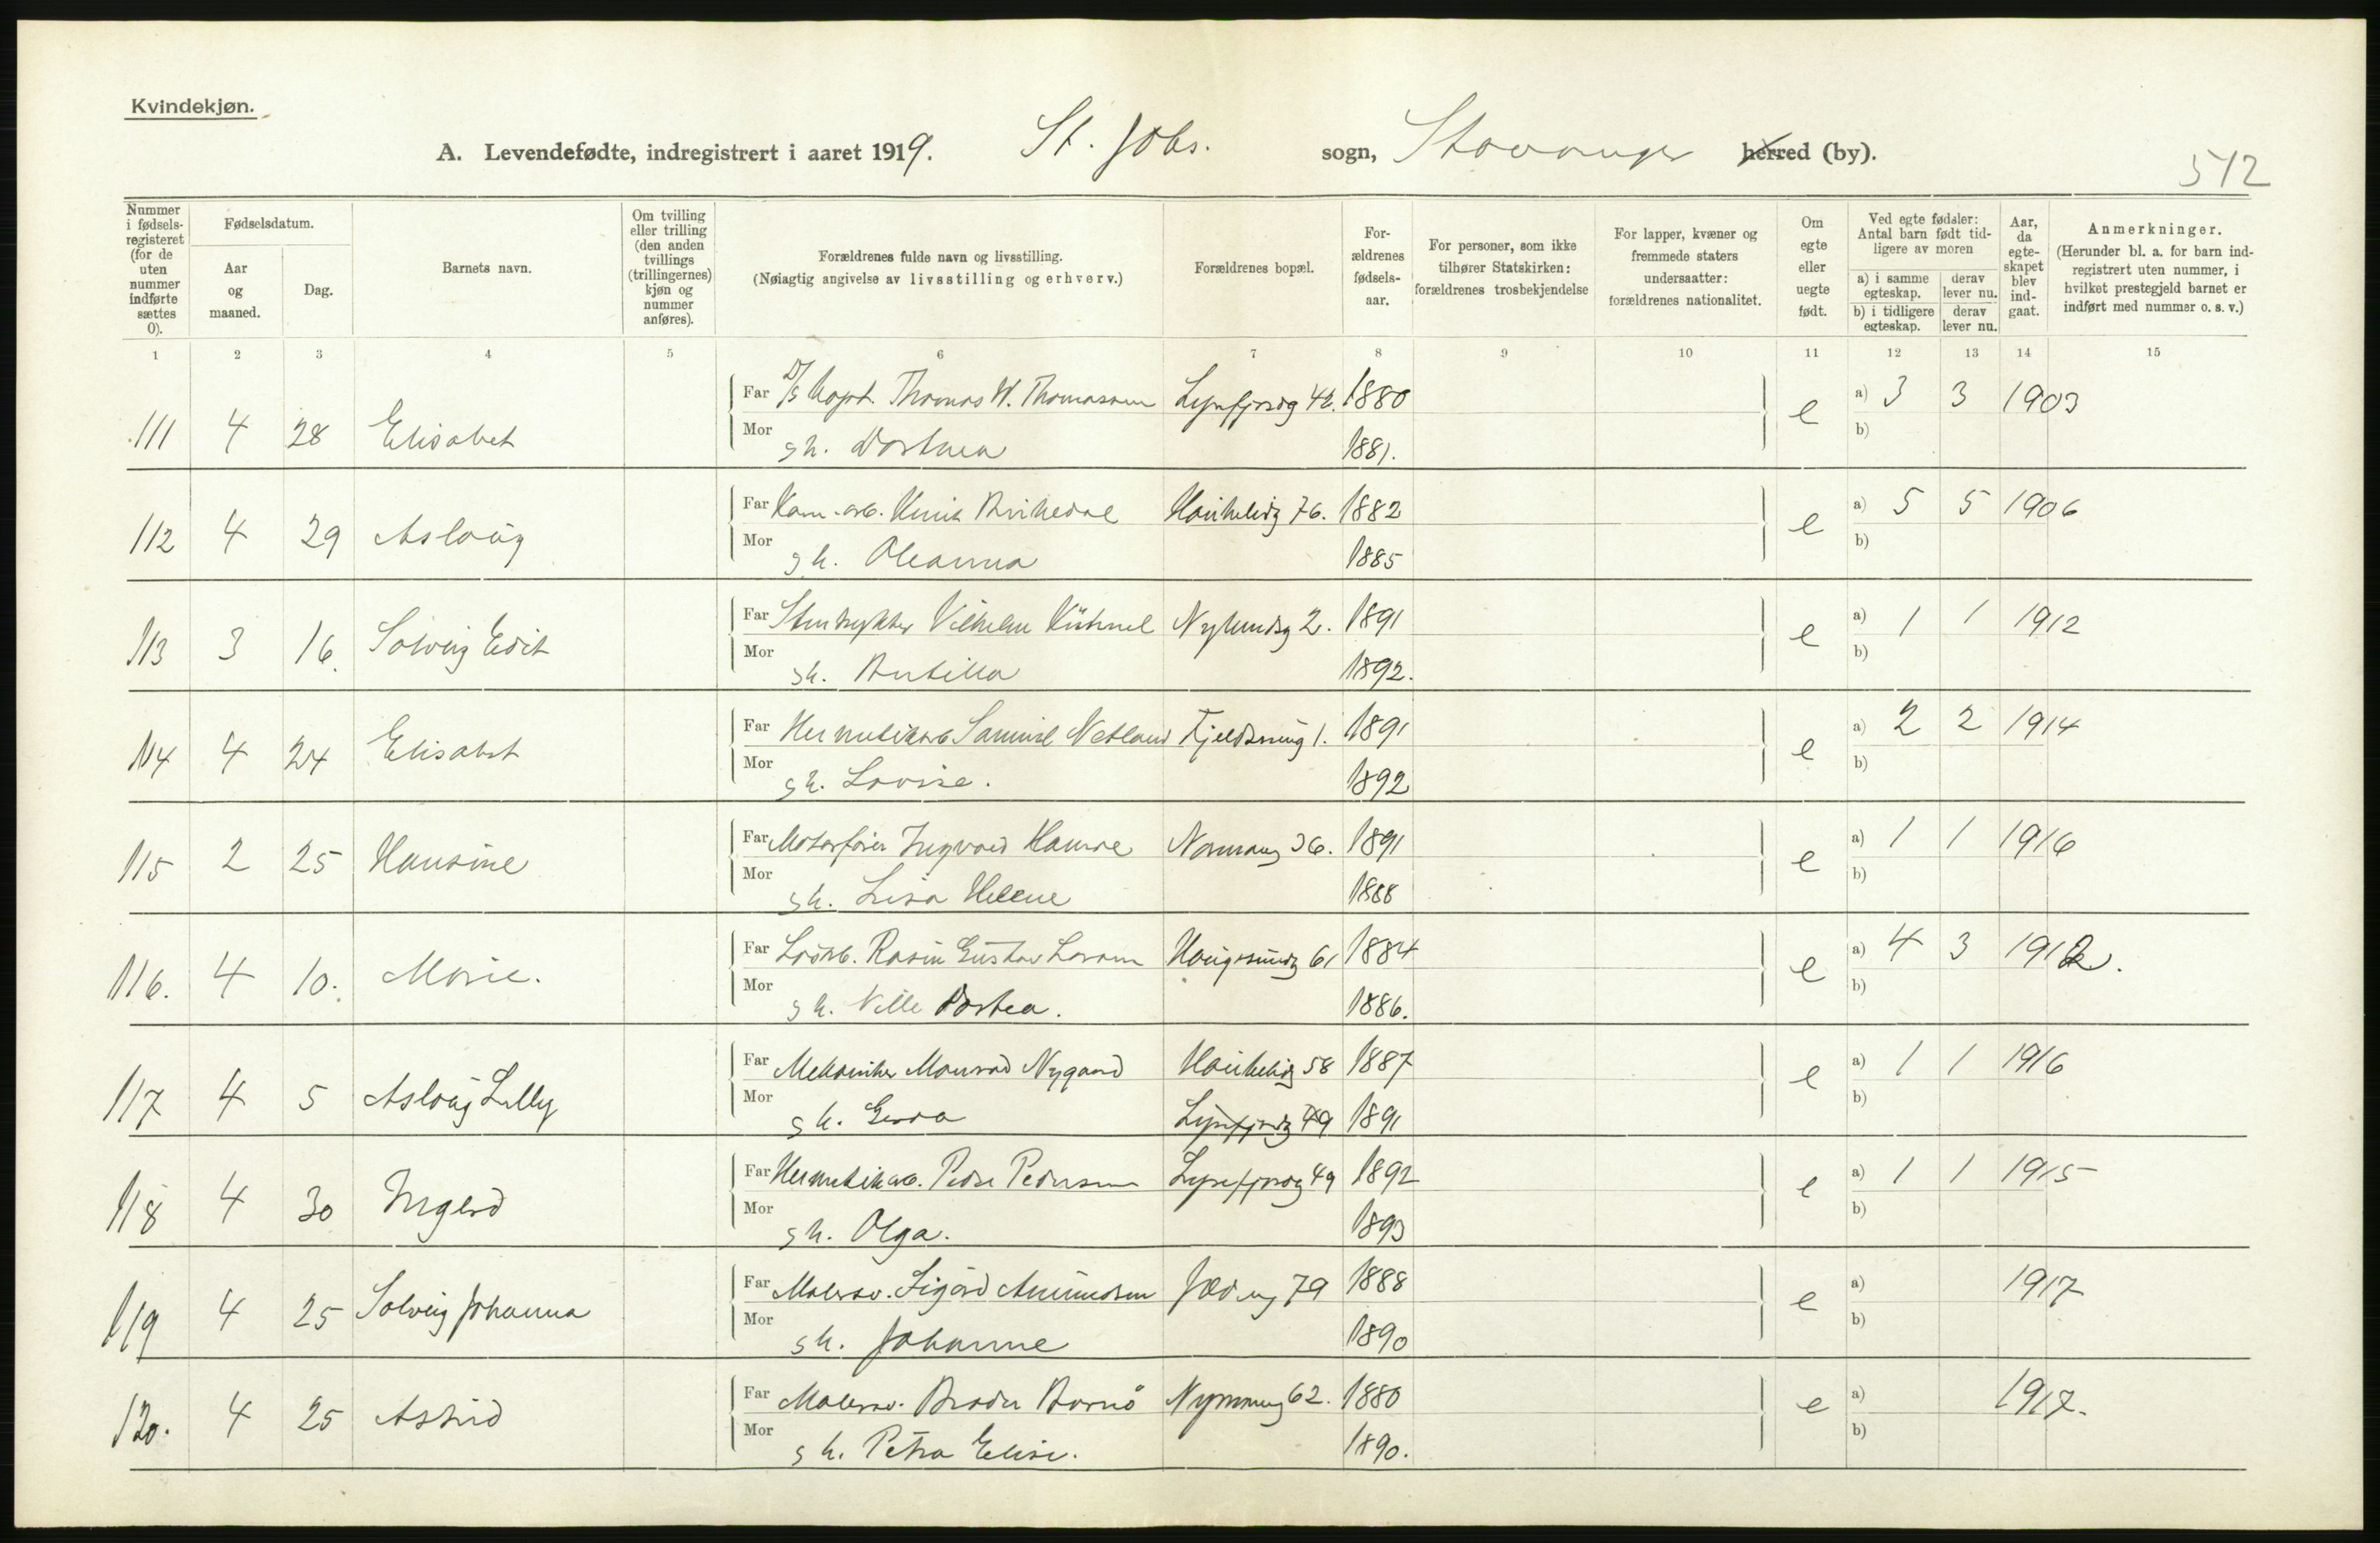 Kvindekjøn.
A. Levendefødte, indregistrert i aaret 1919. St. Johs. sogn, Stavanger herred (by).
512
Nummer i fødselsregisteret (for de uten nummer indførte sættes 0).
Fødselsdatum.
Aar og maaned.
Dag.
Barnets navn.
Om tvilling eller trilling (den anden tvillings (trillingernes) kjøn og nummer anføres).
Forældrenes fulde navn og livsstilling.
(Nøiagtig angivelse av livsstilling og erhverv.)
Forældrenes bopæl.
Forældrenes fødselsaar.
For personer, som ikke tilhører Statskirken: forældrenes trosbekjendelse
For lapper, kvæner og fremmede staters undersaatter: forældrenes nationalitet.
Om egte eller uegte født.
Ved egte fødsler: Antal barn født tidligere av moren
a) i samme egteskap.
derav lever nu.
b) i tidligere egteskap.
derav lever nu.
Aar, da egteskapet blev indgaat.
Anmerkninger.
(Herunder bl. a. for barn indregistrert uten nummer, i hvilket prestegjeld barnet er indført med nummer o. s. v.)
1 2 3 4 5 6 7 8 9 10 11 12 13 14 15
Far D/S Kapt. Thomas W. Thomassen Lysefjordg 42. 1880 a) 3 3 1903
111 4 28 Elisabet e
Mor s h. Dorthea 1881. b)
Far Knut Haukelig 76. 1882 a) 5 5 1906
112 4 29 Aslaug e
Mor s h. Oleanna 1885 b)
Far Stentrykker Vilhelm Kühnel Nylundsg 2. 1891 a) 1 1 1912
113 3 16. Solveig Edit e
Mor s h. 1892. b)
Far Hermetikarb Samuel Netland 1. 1891 a) 2 2 1914
114 4 24 Elisabet e
Mor s h. Lovise. 1892 b)
Far Motorfører Ingvald Hamre 36. 1891 a) 1 1 1916
115 2 25 Hansine e
Mor s h. Lisa Helene 1888 b)
Far Rasm Gustav Larsen Haugesundg 61 1884 a) 4 3 1912.
116. 4 10. Marie. e
Mor s h. Dortea. 1886. b)
Far Mekaniker Monrad Nygaard Haukelig 58 1887 a) 1 1 1916
117 4 5 Aslaug Lilly e
Mor s h. Lysefjordg 49 1891 b)
Far Hermetikarb. Peder Pedersen Lysefjordg 49 1892 a) 1 1 1915
118 4 30 Ingerd e
Mor s h. Olga. 1893 b)
Far Malersv. Sigurd Amundsen 79 1888 a) 1917
119 4 25 Solveig Johanna e
Mor s h. Johanne 1890 b)
Far Malersv. 62. 1880 a) 1917.
120. 4 25 Astrid e
Mor s h. Petra Elise. 1890. b)